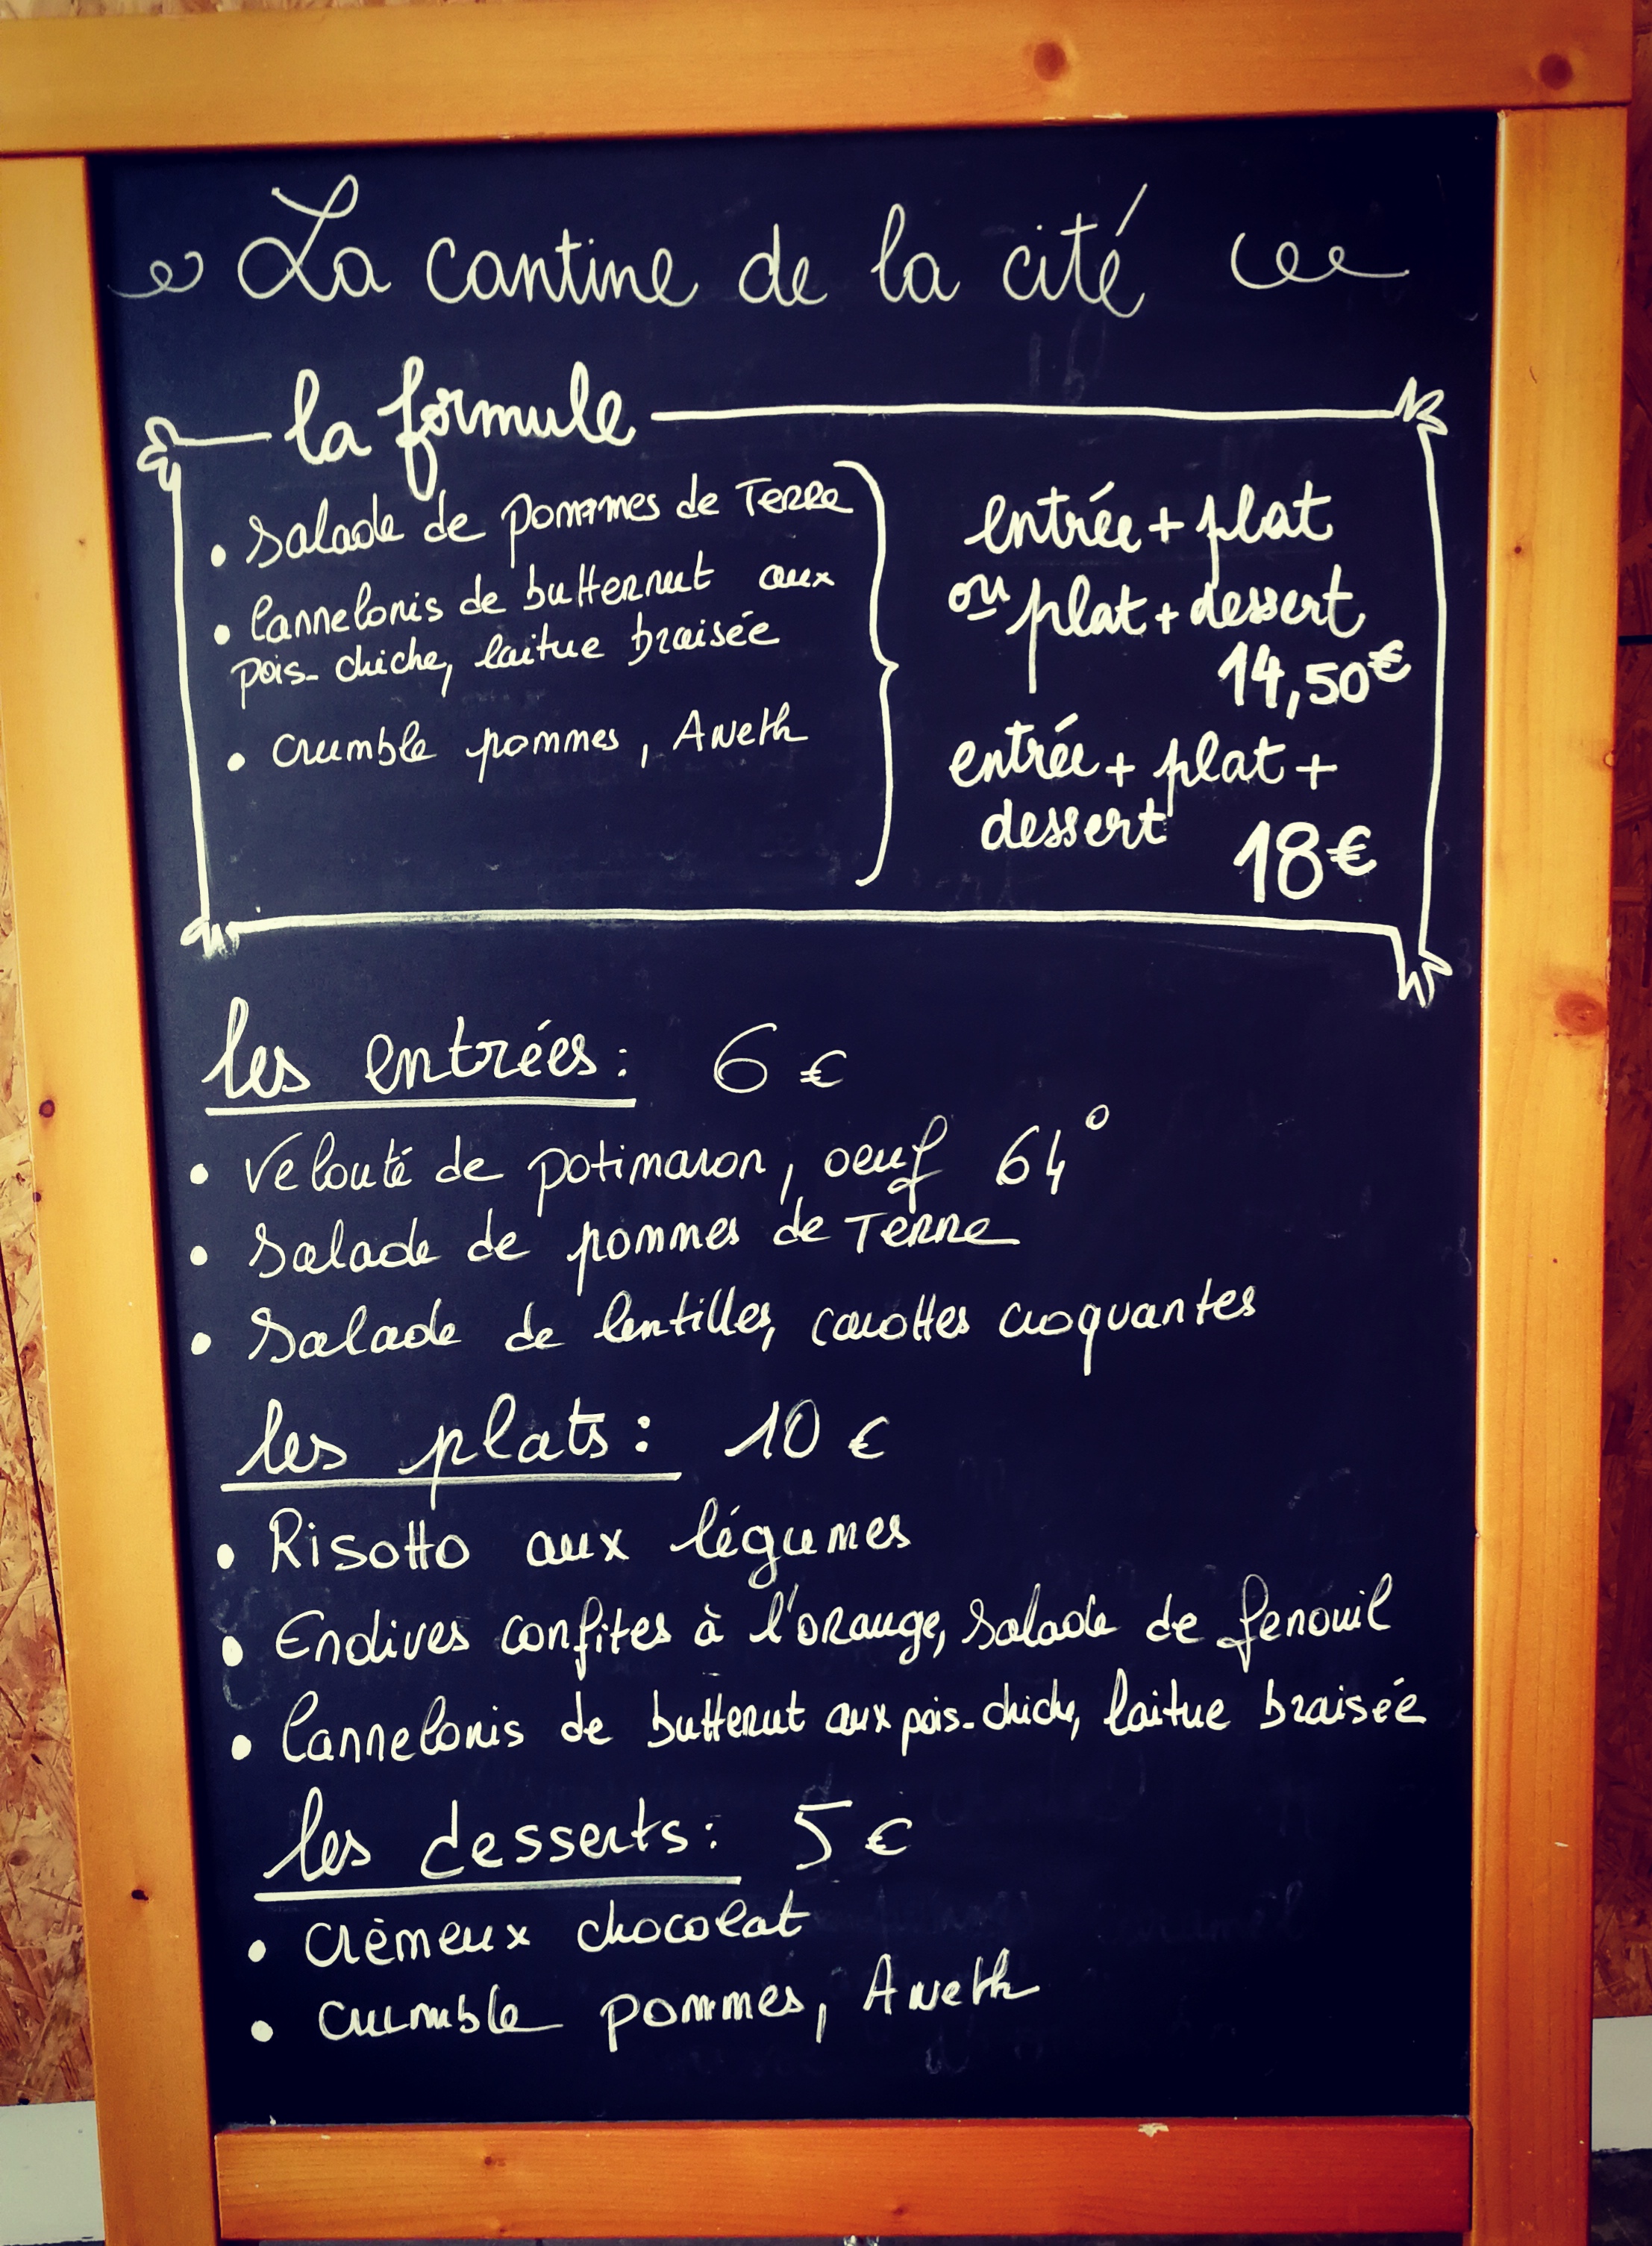 La cantine de la cité
la formule
• Salade de pommes de Terre
• Cannelonis de butternut aux
pois-chiche, laitue braisée
• Crumble pommes, Aneth
entrée + plat
ou plat + dessert
14,50€
entrée + plat +
dessert 18€
les entrées : 6 €
• Velouté de potimaron, oeuf 64°
• Salade de pommes de Terre
• Salade de lentilles, carottes croquantes
les plats : 10 €
• Risotto aux légumes
• Endives confites à l'orange, Salade de fenouil
• Cannelonis de butternut aux pois-chiche, laitue braisée
les desserts : 5 €
• Crèmeux chocolat
• Crumble pommes, Aneth